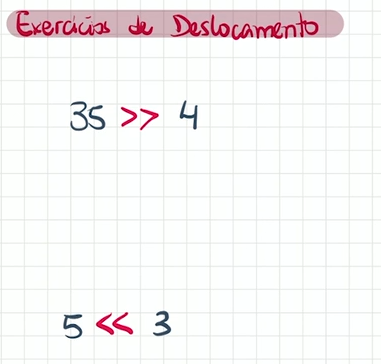 Exercícios de Deslocamento
35 >> 4
5 << 3